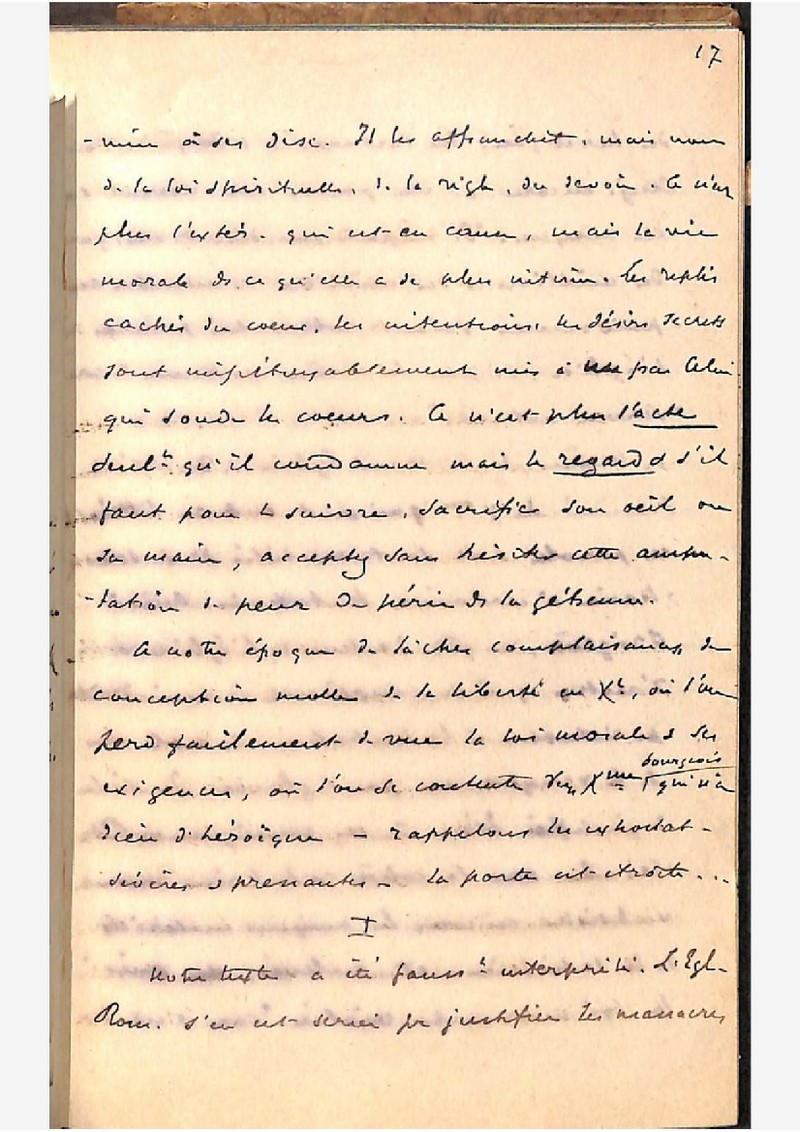 17
à ses disc. Il les affranchit, mais non
de la loi spirituelle, de la règle, du devoir. Ce n'est
plus l'extér. qui est en cause, mais la vie
morale ds ce qu'elle a de plus intime. Les replis
cachés du coeur, les intentions, les désirs secrets
sont impitoyablement mis à nu par Celui
qui sonde les coeurs. Ce n'est plus l'acte
seult qu'il condamne mais le regard & s'il
faut pour le suivre, sacrifier son oeil ou
sa main, acceptez sans hésiter cette ampu-
-tation de peur de périr ds la géhenne.
A notre époque de lâches complaisances, de
conception molle de la liberté en Xt, où l'on
perd facilement de vue la loi morale & ses
exigences, où l'on se contente d'un Xme bourgeois qui n'a
rien d'héroïque – rappelons les exhortat-
sévères & prenantes – la porte est étroite...
I
Notre texte a été fausst interprété. L'Egl-
Rom. s'en est servi pr justifier les massacres